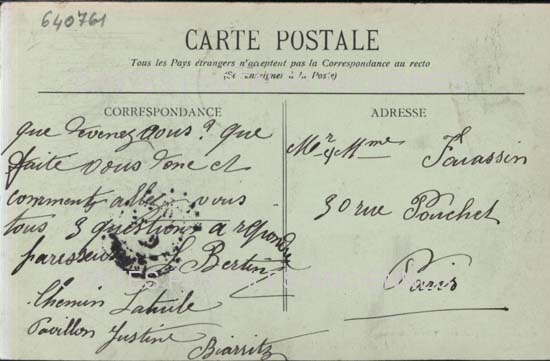 640761
CARTE POSTALE
Tous les Pays étrangers n'acceptent pas la Correspondance au recto
(Se renseigner à la Poste)
CORRESPONDANCE
que devenez vous? que
faite vous donc et
comment allez vous
tous 3 questions a repondre
paresseux Bertin
Chemin Latuile
Pavillon Justine Biarritz
ADRESSE
Mr y Mme Farassin
30 rue Pouchet
Paris